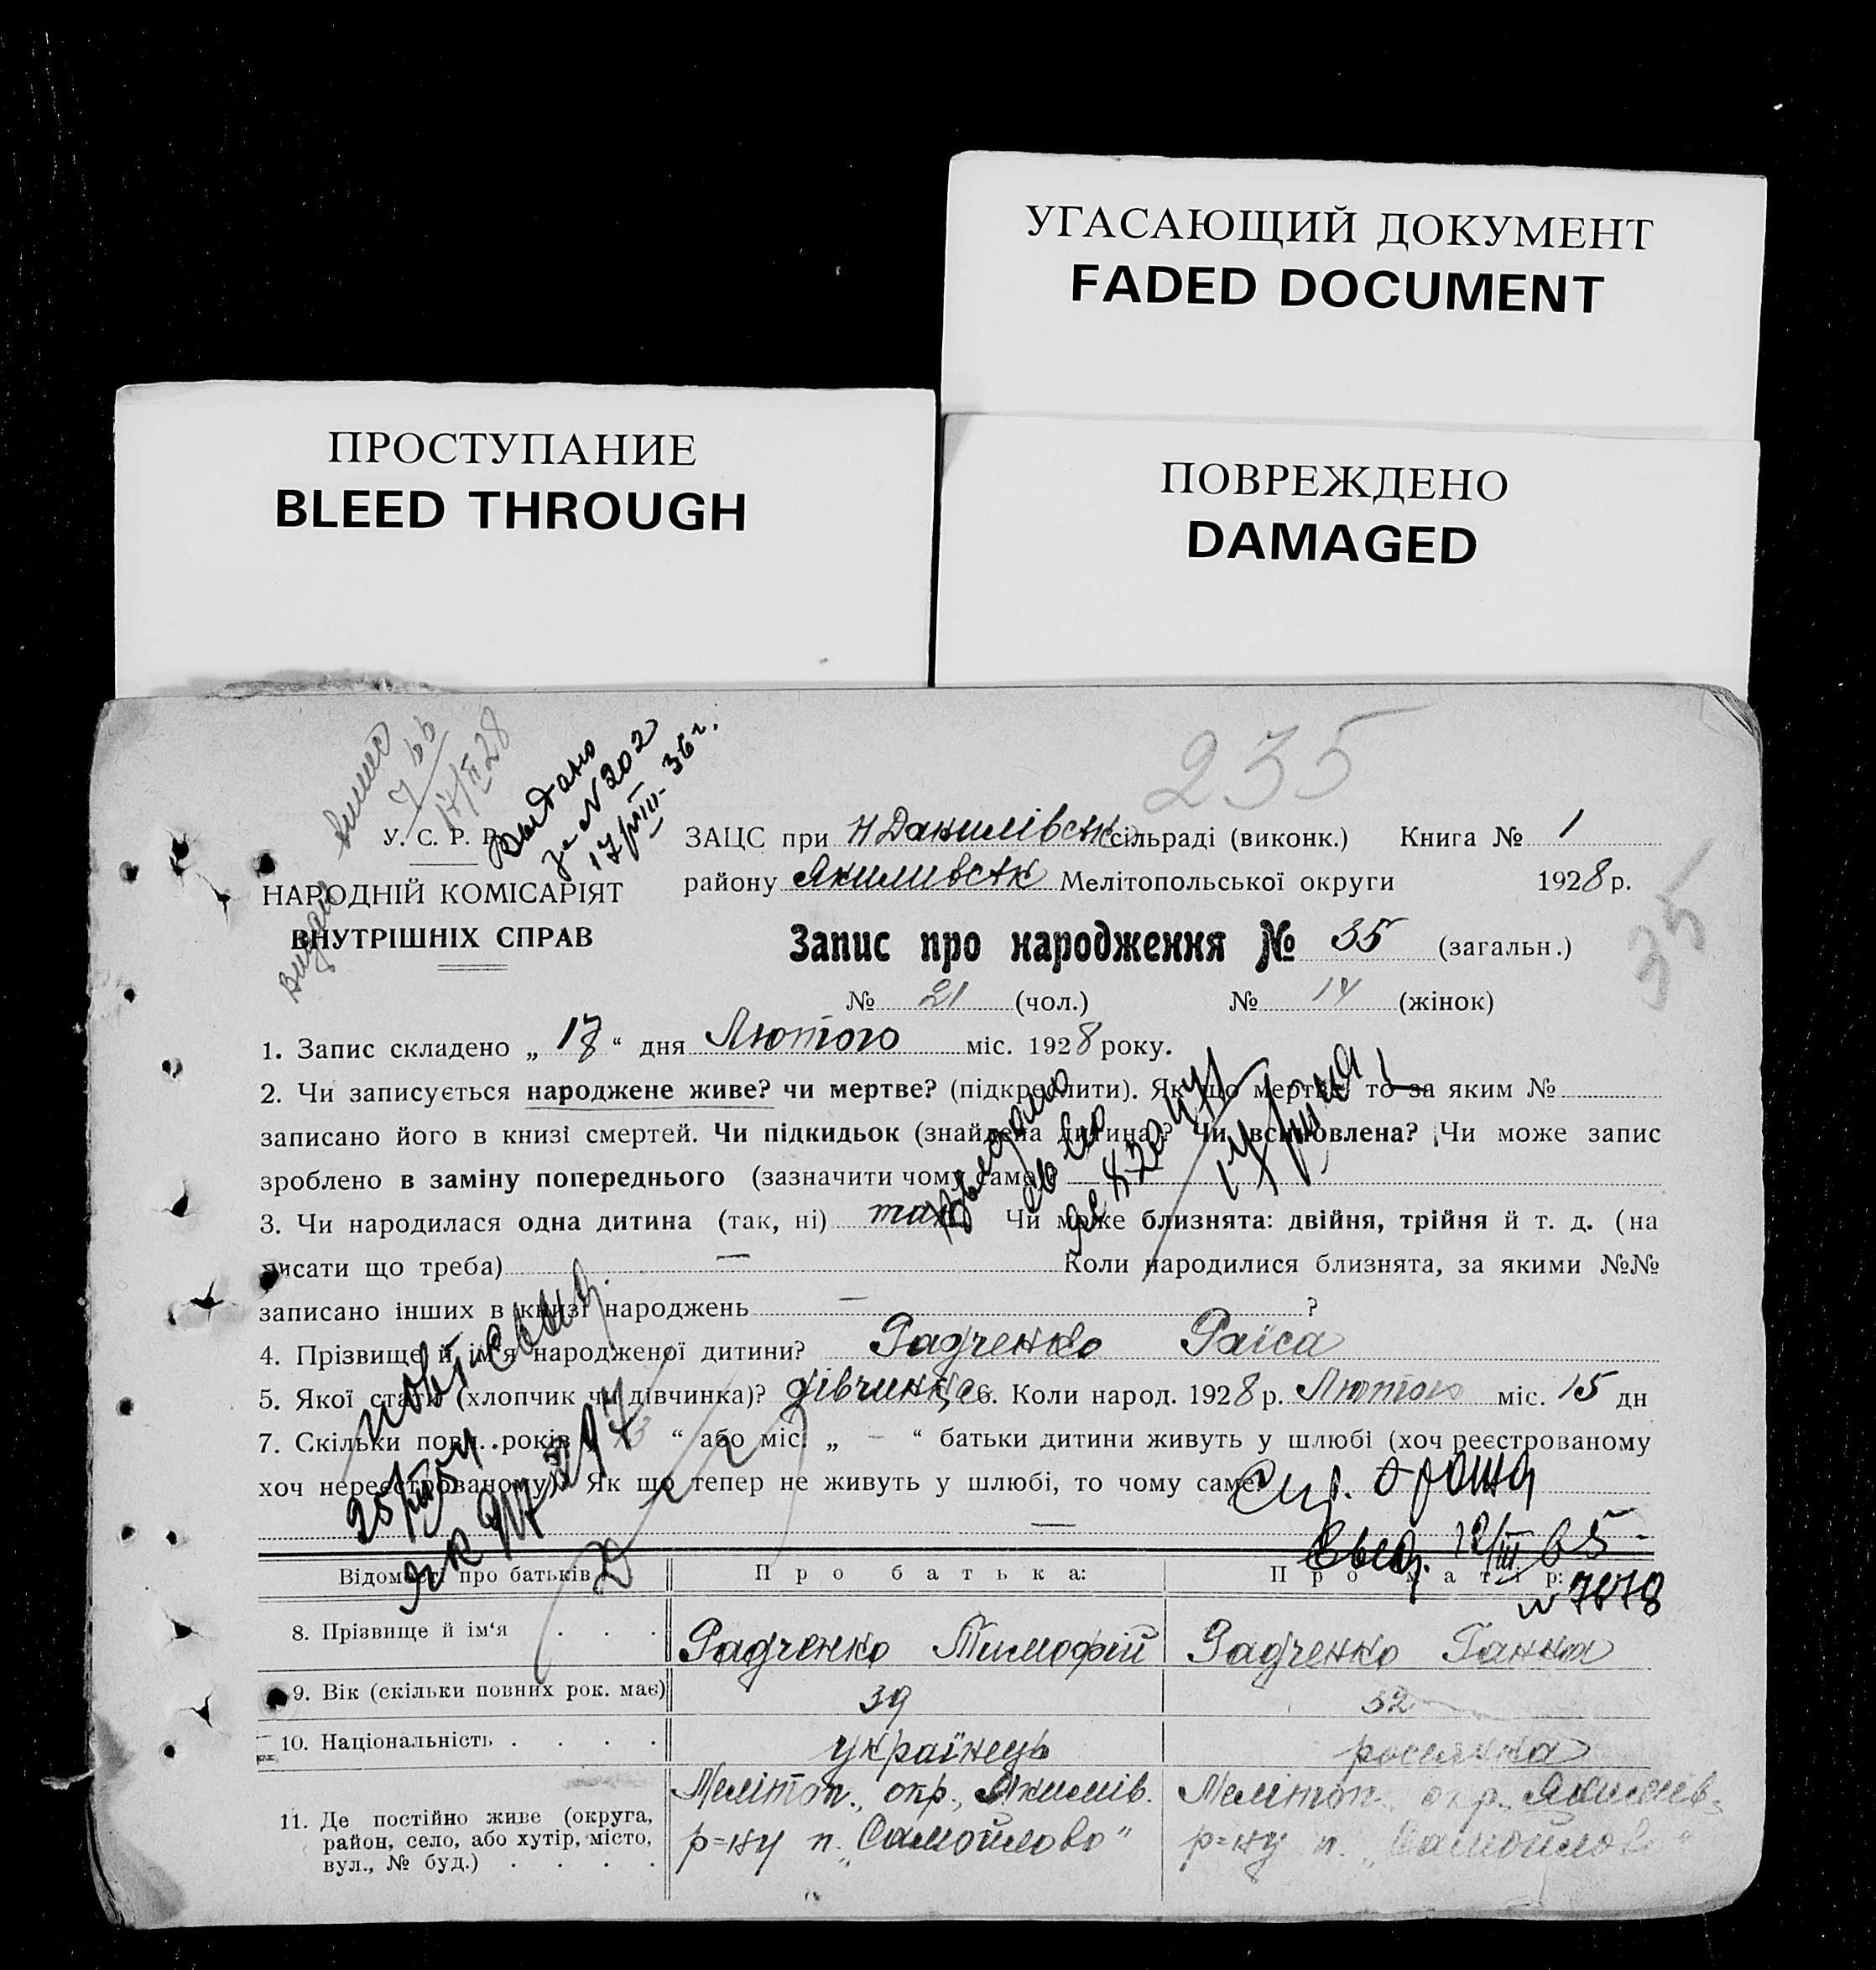 УГАСАЮЩИЙ ДОКУМЕНТ
FADED DOCUMENT
ПРОСТУПАНИЕ
BLEED THROUGH
ПОВРЕЖДЕНО
DAMAGED
235
Выдано
за N 202
17/VIII-36 г.
У. С. Р. Р.
НАРОДНІЙ КОМІСАРІЯТ
ВНУТРІШНІХ СПРАВ
ЗАЦС при Н Данилівськ сільраді (виконк.) Книга № 1
району Якимивськ Мелітопольської округи 1928 р.
35
Запис про народження № 35 (загальн.)
№ 21 (чол.) № 14 (жінок)
1. Запис складено „ 17 “ дня Лютого міс. 1928 року.
2. Чи записується народжене живе? чи мертве? (підкреслити). Як що мертве, то за яким №
записано його в книзі смертей. Чи підкидьок (знайдена дитина)? Чи всиновлена? Чи може запис
зроблено в заміну попереднього (зазначити чому саме)
3. Чи народилася одна дитина (так, ні) так Чи може близнята: двійня, трійня й т. д. (на
писати що треба) — Коли народилися близнята, за якими №№
записано інших в книзі народжень — ?
4. Прізвище й ім'я народженої дитини? Радченко Раїса
5. Якої стати (хлопчик чи дівчинка)? дівчинка 6. Коли народ. 1928 р. Лютого міс. 15 дн
7. Скільки повн. років “ або міс. „ - “ батьки дитини живуть у шлюбі (хоч реєстрованому
хоч нереєстрованому)? Як що тепер не живуть у шлюбі, то чому саме?
—
повт. свид.
18/III 65
Відомості про батьків Про батька: Про матір:
8. Прізвище й ім'я . . . Радченко Тимофій Радченко Ганна
9. Вік (скільки повних рок. має) 39 32
10. Національність . . . . українець росіянка
11. Де постійно живе (округа, район, село, або хутір, місто, вул., № буд.) . . . .
Меліточ., окр., Якимів. Мелітоп., окр., Якимів.
р=ну п. „Самойлово" р=ну п. „Самойлово"